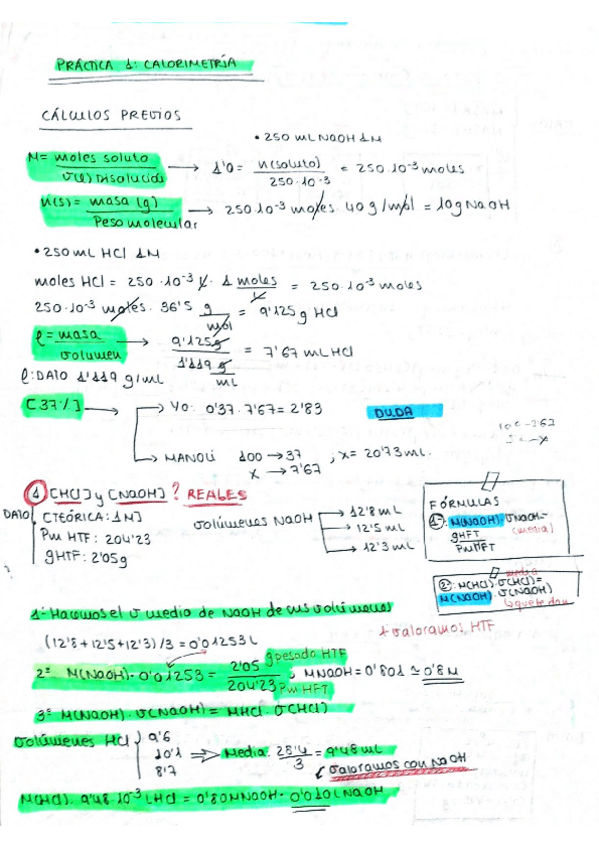 PRÁCTICA 1: CALORIMETRÍA
CÁLCULOS PREVIOS
• 250 mL NaOH 1M
M = moles soluto / v(l) disolución → 1'0 = n(soluto) / 250·10⁻³ = 250·10⁻³ moles
n(s) = masa (g) / Peso molecular → 250·10⁻³ moles · 40 g/mol = 10g NaOH
• 250 mL HCl 1M
moles HCl = 250·10⁻³ L · 1 moles / L = 250·10⁻³ moles
250·10⁻³ moles · 36'5 g / mol = 9'125 g HCl
ρ = masa / volumen → 9'125 g / 1'119 g / mL = 7'67 mL HCl
ρ: DATO 1'119 g/mL
[37%] → YO: 0'37·7'67 = 2'83 DUDA
→ MANOLI 100 → 37 ; x = 20'73 mL.
x → 7'67
① [HCl] y [NaOH]? REALES
DATO [TEÓRICA: 1M]
Pm HTF: 204'23
gHTF: 2'05g
volúmenes NaOH → 12'8 mL
→ 12'5 mL
→ 12'3 mL
FÓRMULAS
①: M(NaOH)·vNaOH =
(media)
gHFT / PmHFT
media
②: M(HCl)·v(HCl) =
M(NaOH)·v(NaOH)
1- Hacemos el v medio de NaOH de sus volúmenes
(12'8 + 12'5 + 12'3)/3 = 0'01253 L
valoramos HTF
2º M(NaOH)·0'01253 = 2'05 g pesado HTF / 204'23 Pm HFT ; MNaOH = 0'801 ≃ 0'8 M
3º M(NaOH)·v(NaOH) = MHCl·v(HCl)
Volúmenes HCl 9'6
10'1 ⇒ Media. 28'4 / 3 = 9'48 mL
8'7
valoramos con NaOH
M(HCl)·9'48·10⁻³ L HCl = 0'80 M NaOH · 0'010 L NaOH